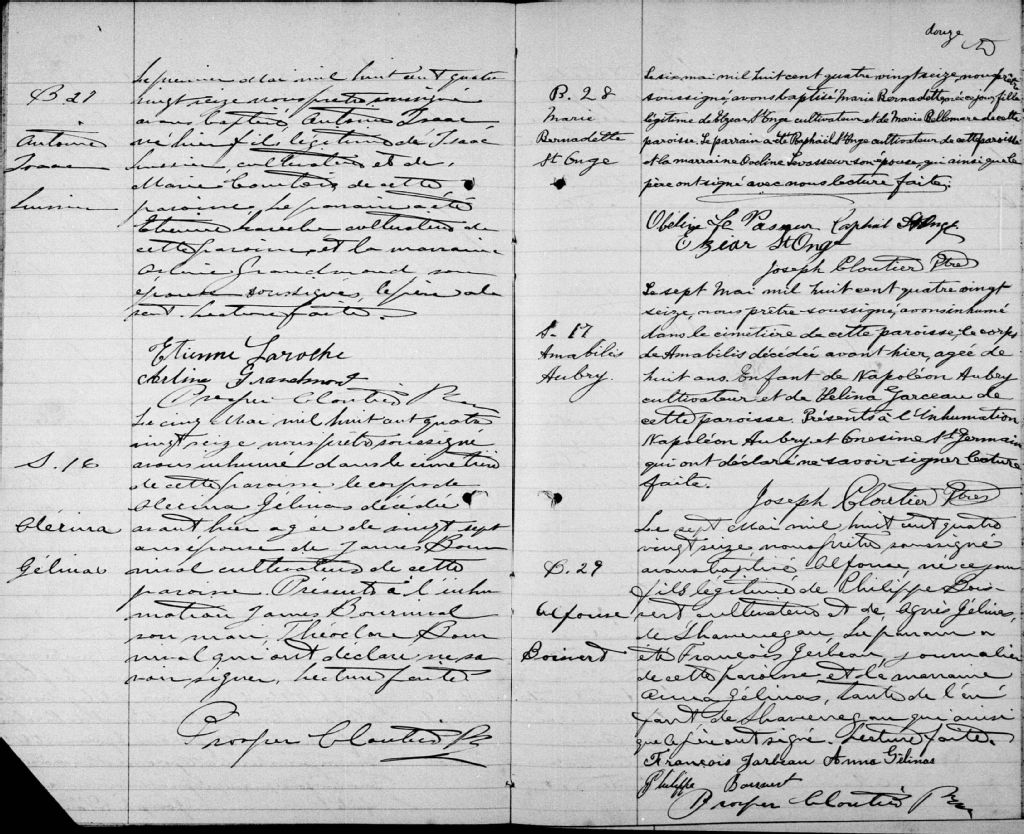 B. 27
Antoine
Isaac
Lussier
Le premier Mai mil huit cent quatre
vingt seize nous prêtre soussigné
avons baptisé, Antoine Isaac
né hier fils légitime de Isaac
Lussier, cultivateur et de
Marie Courtois de cette
paroisse. Le parrain a été
Etienne Laroche cultivateur de
cette paroisse et la marraine
Grandmond, son
épouse soussignés, le père
Lecture faite.
Etienne Laroche
Arline Grandmont
Prosper Cloutier Ptre
S. 16
Alexina
Gélinas
Le cinq Mai mil huit cent quatre
vingt seize nous prêtre soussigné
avons inhumé dans le cimetière
de cette paroisse le corps de
Alexina Gélinas décédée
avant hier agée de vingt sept
ans épouse de James Bour
nival cultivateur de cette
paroisse. Présents à l'inhu
mation James Bournival
son mari, Théodore Bour
nival qui ont déclaré ne sa
voir signer. Lecture faite
Prosper Cloutier Ptre
douze
B. 28
Marie
Bernadette
St Onge
Le six mai mil huit cent quatre vingt seize, nous prêtre
soussigné, avons baptisé Marie Bernadette née ce jour, fille
légitime de Elzear St Onge cultivateur et de Marie Bellemare de cette
paroisse. Le parrain a été Raphaël St Onge cultivateur de cette paroisse
et la marraine Ovéline Levasseur son épouse, qui ainsi que le
père ont signé avec nous lecture faite.
Obeline Le Vasseur Raphael St Onge
Elzear St Onge
Joseph Cloutier Ptre
S- 17
Amabilis
Aubry.
Le sept Mai mil huit cent quatre vingt
seize, nous prêtre soussigné, avons inhumé
dans le cimetière de cette paroisse, le corps
de Amabilis décédée avant hier, agée de
huit ans. Enfant de Napoléon Aubry
cultivateur et de Zelina Garceau de
cette paroisse. Présents à l'Inhumation
Napoléon Aubry et Onesime St Germain
qui ont déclaré ne savoir signer lecture
faite.
Joseph Cloutier Ptre
B. 29
Alfonse
Boisvert
Le sept Mai mil huit cent quatre
vingt seize, nous prêtre soussigné
avons baptisé Alfonse, né ce jour
fils légitime de Philippe Bois-
vert cultivateur et de Agnès Gélinas,
de Shawenegan, Le parrain a
été François Gerbeau, journalier
de cette paroisse, et la marraine
Anna Gélinas, tante de l'en
fant de Shawenegan qui ainsi
que le père ont signé. Lecture faite.
François Jarbeau Anna Gélinas
Philippe Boisvert
Prosper Cloutier Ptre